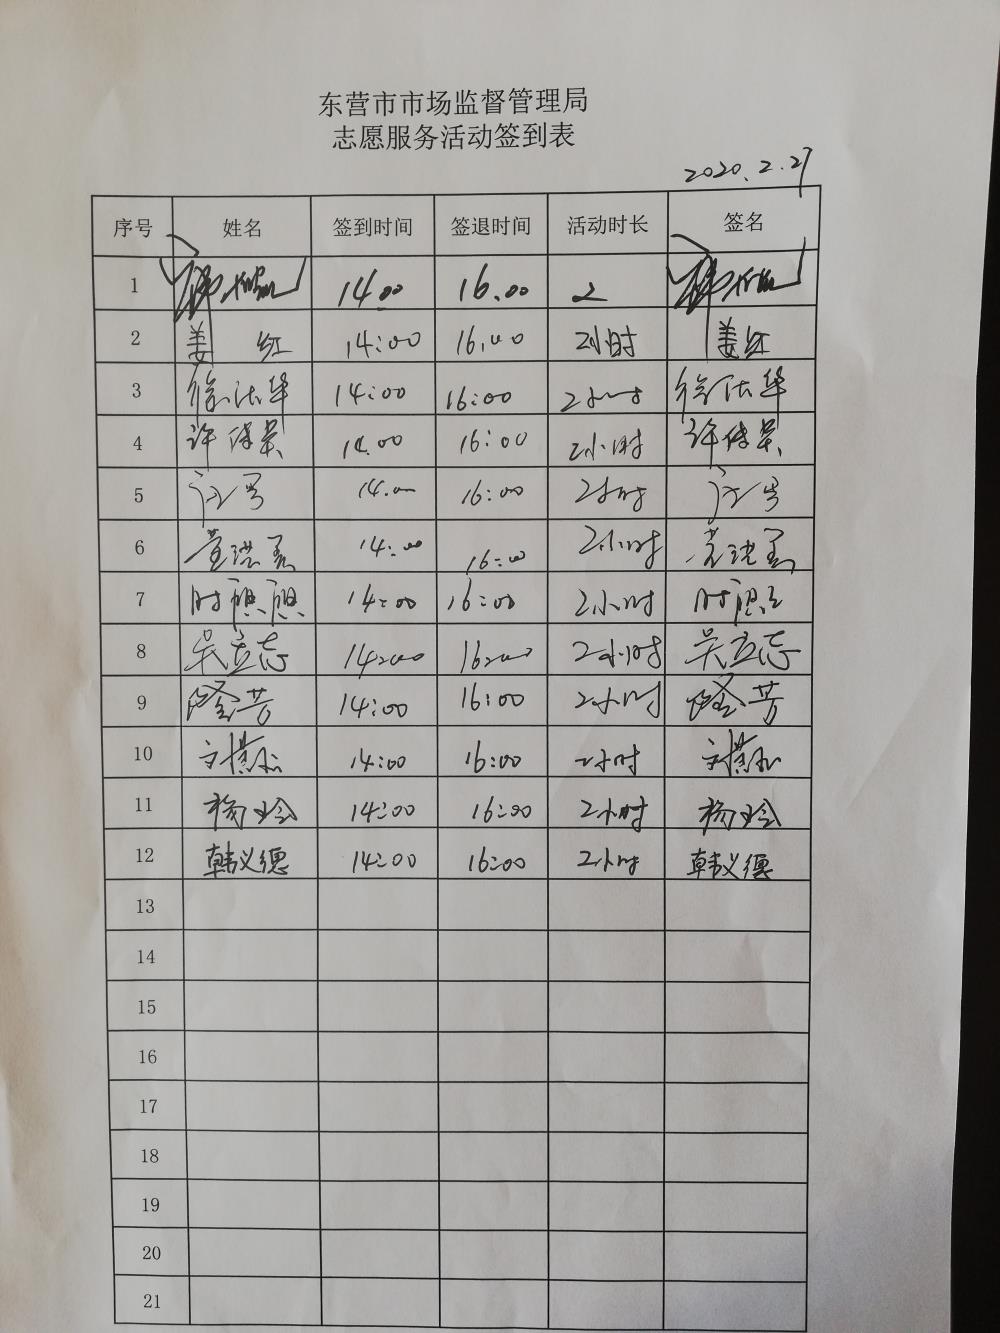 东营市市场监督管理局
志愿服务活动签到表
2020.2.27
序号 姓名 签到时间 签退时间 活动时长 签名
1 14.00 16.00 2
2 姜红 14:00 16.00 2小时 姜红
3 徐法华 14:00 16:00 2小时 徐法华
4 许传荣 14.00 16:00 2小时 许传荣
5 14.00 16:00 2小时
6 14:00 16:00 2小时
7 时 14:00 16:00 2小时 时
8 吴立志 14:00 16:00 2小时 吴立志
9 隆芳 14:00 16:00 2小时 隆芳
10 14:00 16:00 2小时
11 杨玲 14:00 16:00 2小时 杨玲
12 韩义德 14:00 16:00 2小时 韩义德
13
14
15
16
17
18
19
20
21